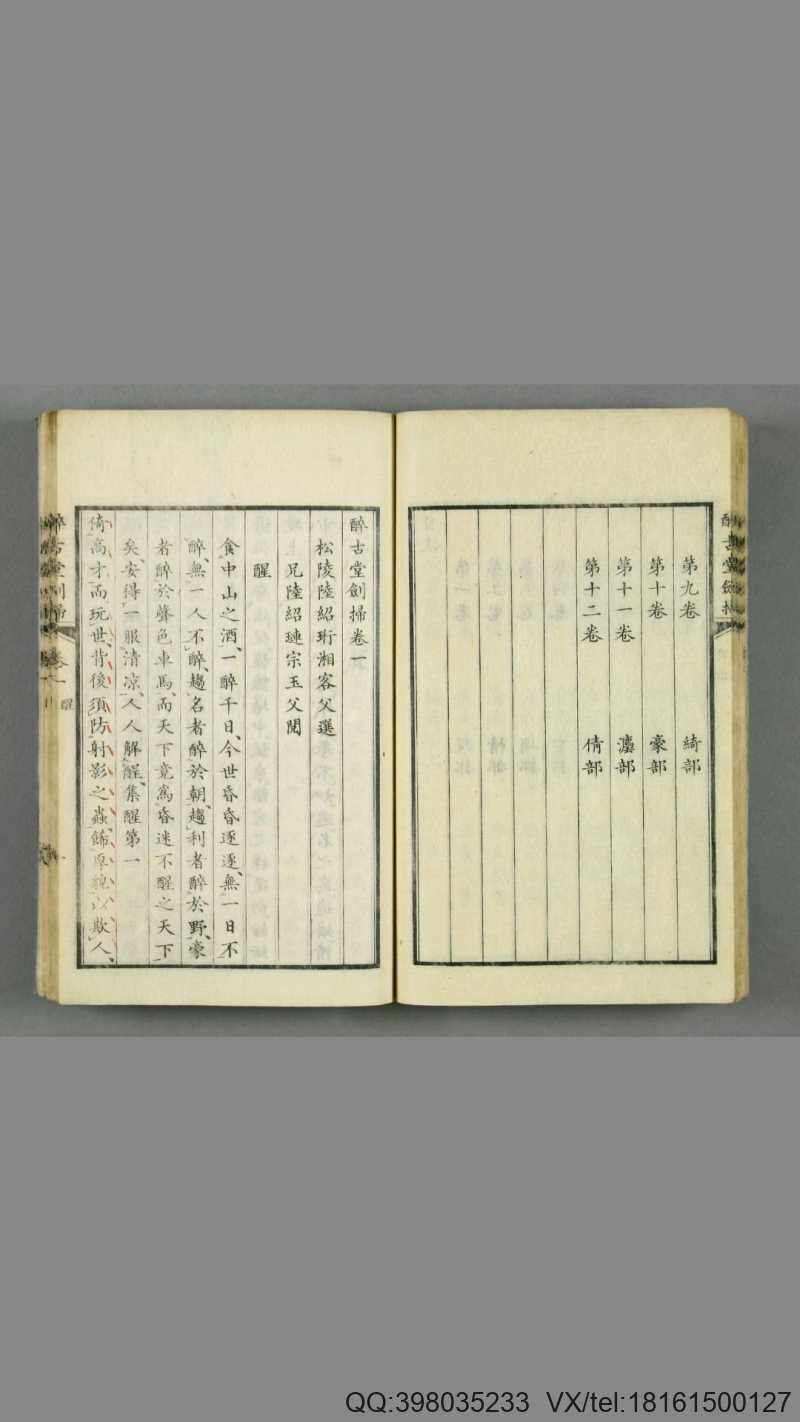 第九卷 綺部
第十卷 豪部
第十一卷 灋部
第十二卷 倩部
醉古堂劍掃卷一
松陵陸紹珩湘客父選
兄陸紹璉宗玉父閱
醒
食中山之酒、一醉千日、今世昏昏逐逐、無一日不
醉、無一人不醉、趨名者醉於朝、趨利者醉於野、豪
者醉於聲色車馬、而天下竟爲昏迷不醒之天下
矣、安得一服清凉、人人解醒、集醒第一
倚高才而玩世、背後須防射影之蟲、飾厚貌以欺人、
醉古堂劍掃 卷一 醒
QQ:398035233 VX/tel:18161500127